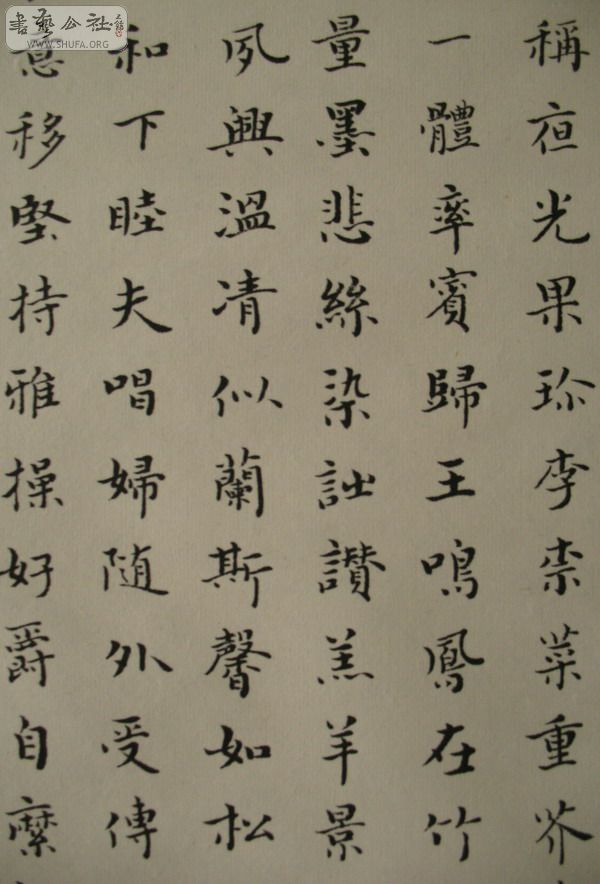 稱夜光果珍李柰菜重芥
一體率賓歸王鳴鳳在竹
量墨悲絲染詩讚羔羊景
夙興溫凊似蘭斯馨如松
和下睦夫唱婦随外受傳
意移堅持雅操好爵自縻
書藝公社
WWW.SHUFA.ORG